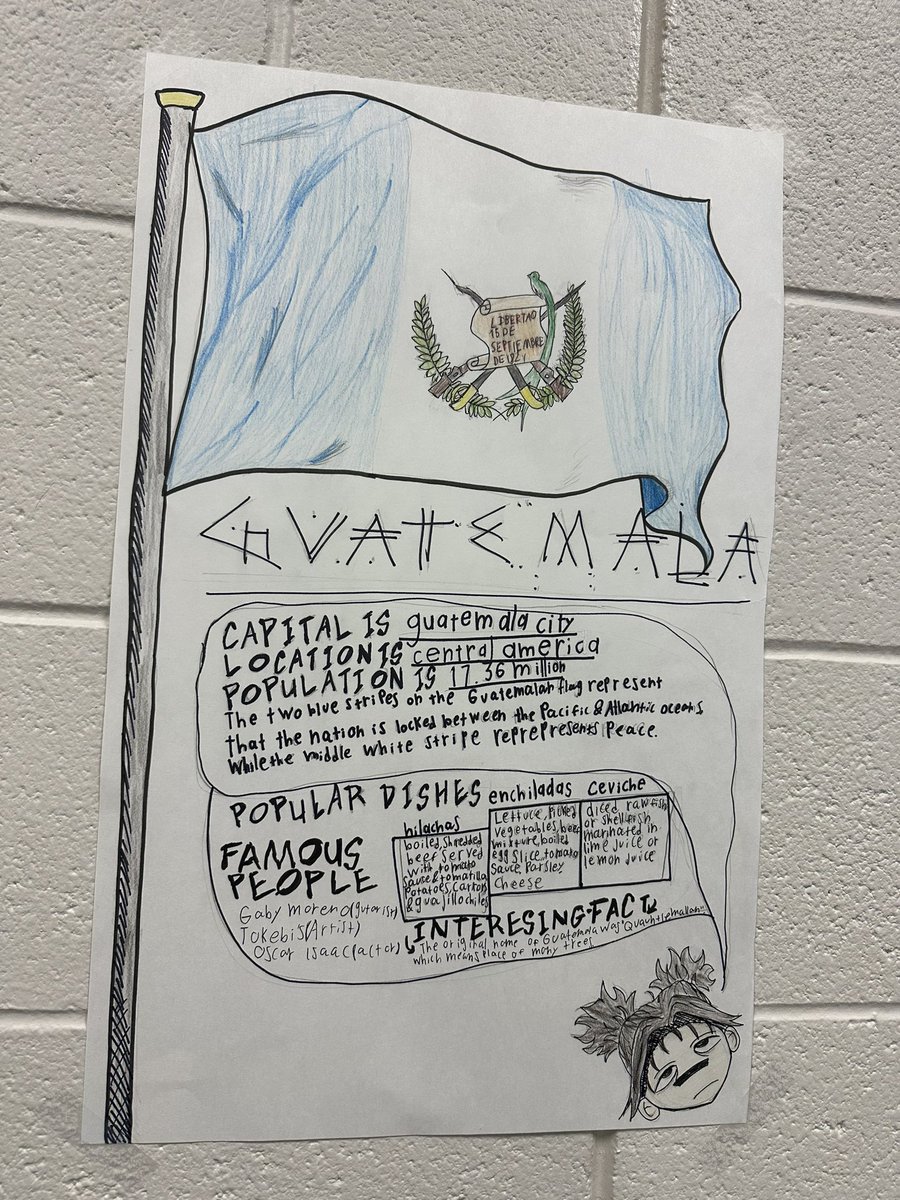 LIBERTAD
15 DE
SEPTIEMBRE
DE 1821
GUATEMALA
CAPITAL IS guatemala city
LOCATION IS central america
POPULATION IS 17.36 million
The two blue stripes on the Guatemalan flag represent
that the nation is locked between the Pacific & Atlantic oceans
While the middle white stripe reprepresents Peace.
POPULAR DISHES
hilachas
boiled, shredded
beef served
with tomato
sauce & tomatilla
Potatoes, carrots
& guajillo chiles
enchiladas
Lettuce,
vegetables, beef
mixture, boiled
egg slice, tomato
sauce, Parsley
Cheese
ceviche
diced raw fish
or shellfish
marinated in
lime juice or
lemon juice
FAMOUS
PEOPLE
Gaby Moreno (gutarist)
Tokebis (Artist)
Oscar Isaac (actor)
INTERESING FACT
The original name of Guatemala was
which means place of many trees